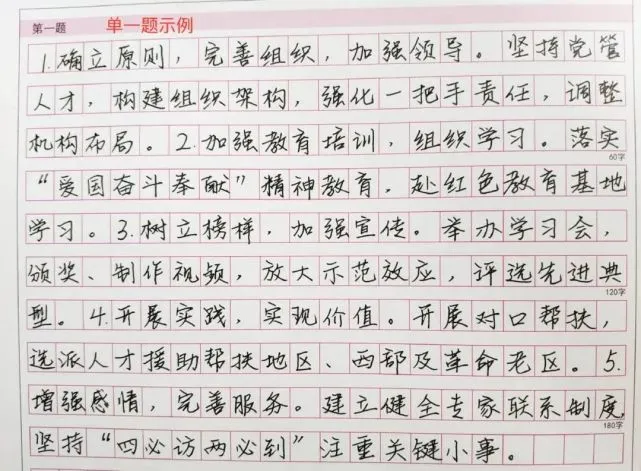 第一题 单一题示例
1.确立原则，完善组织，加强领导。坚持党管
人才，构建组织架构，强化一把手责任，调整
机构布局。2.加强教育培训，组织学习。落实
60字
“爱国奋斗奉献”精神教育，赴红色教育基地
学习。3.树立榜样，加强宣传。举办学习会，
颁奖、制作视频，放大示范效应，评选先进典
120字
型。4.开展实践，实现价值。开展对口帮扶，
选派人才援助帮扶地区、西部及革命老区。5.
增强感情，完善服务。建立健全专家联系制度，
180字
坚持“四必访两必到”注重关键小事。